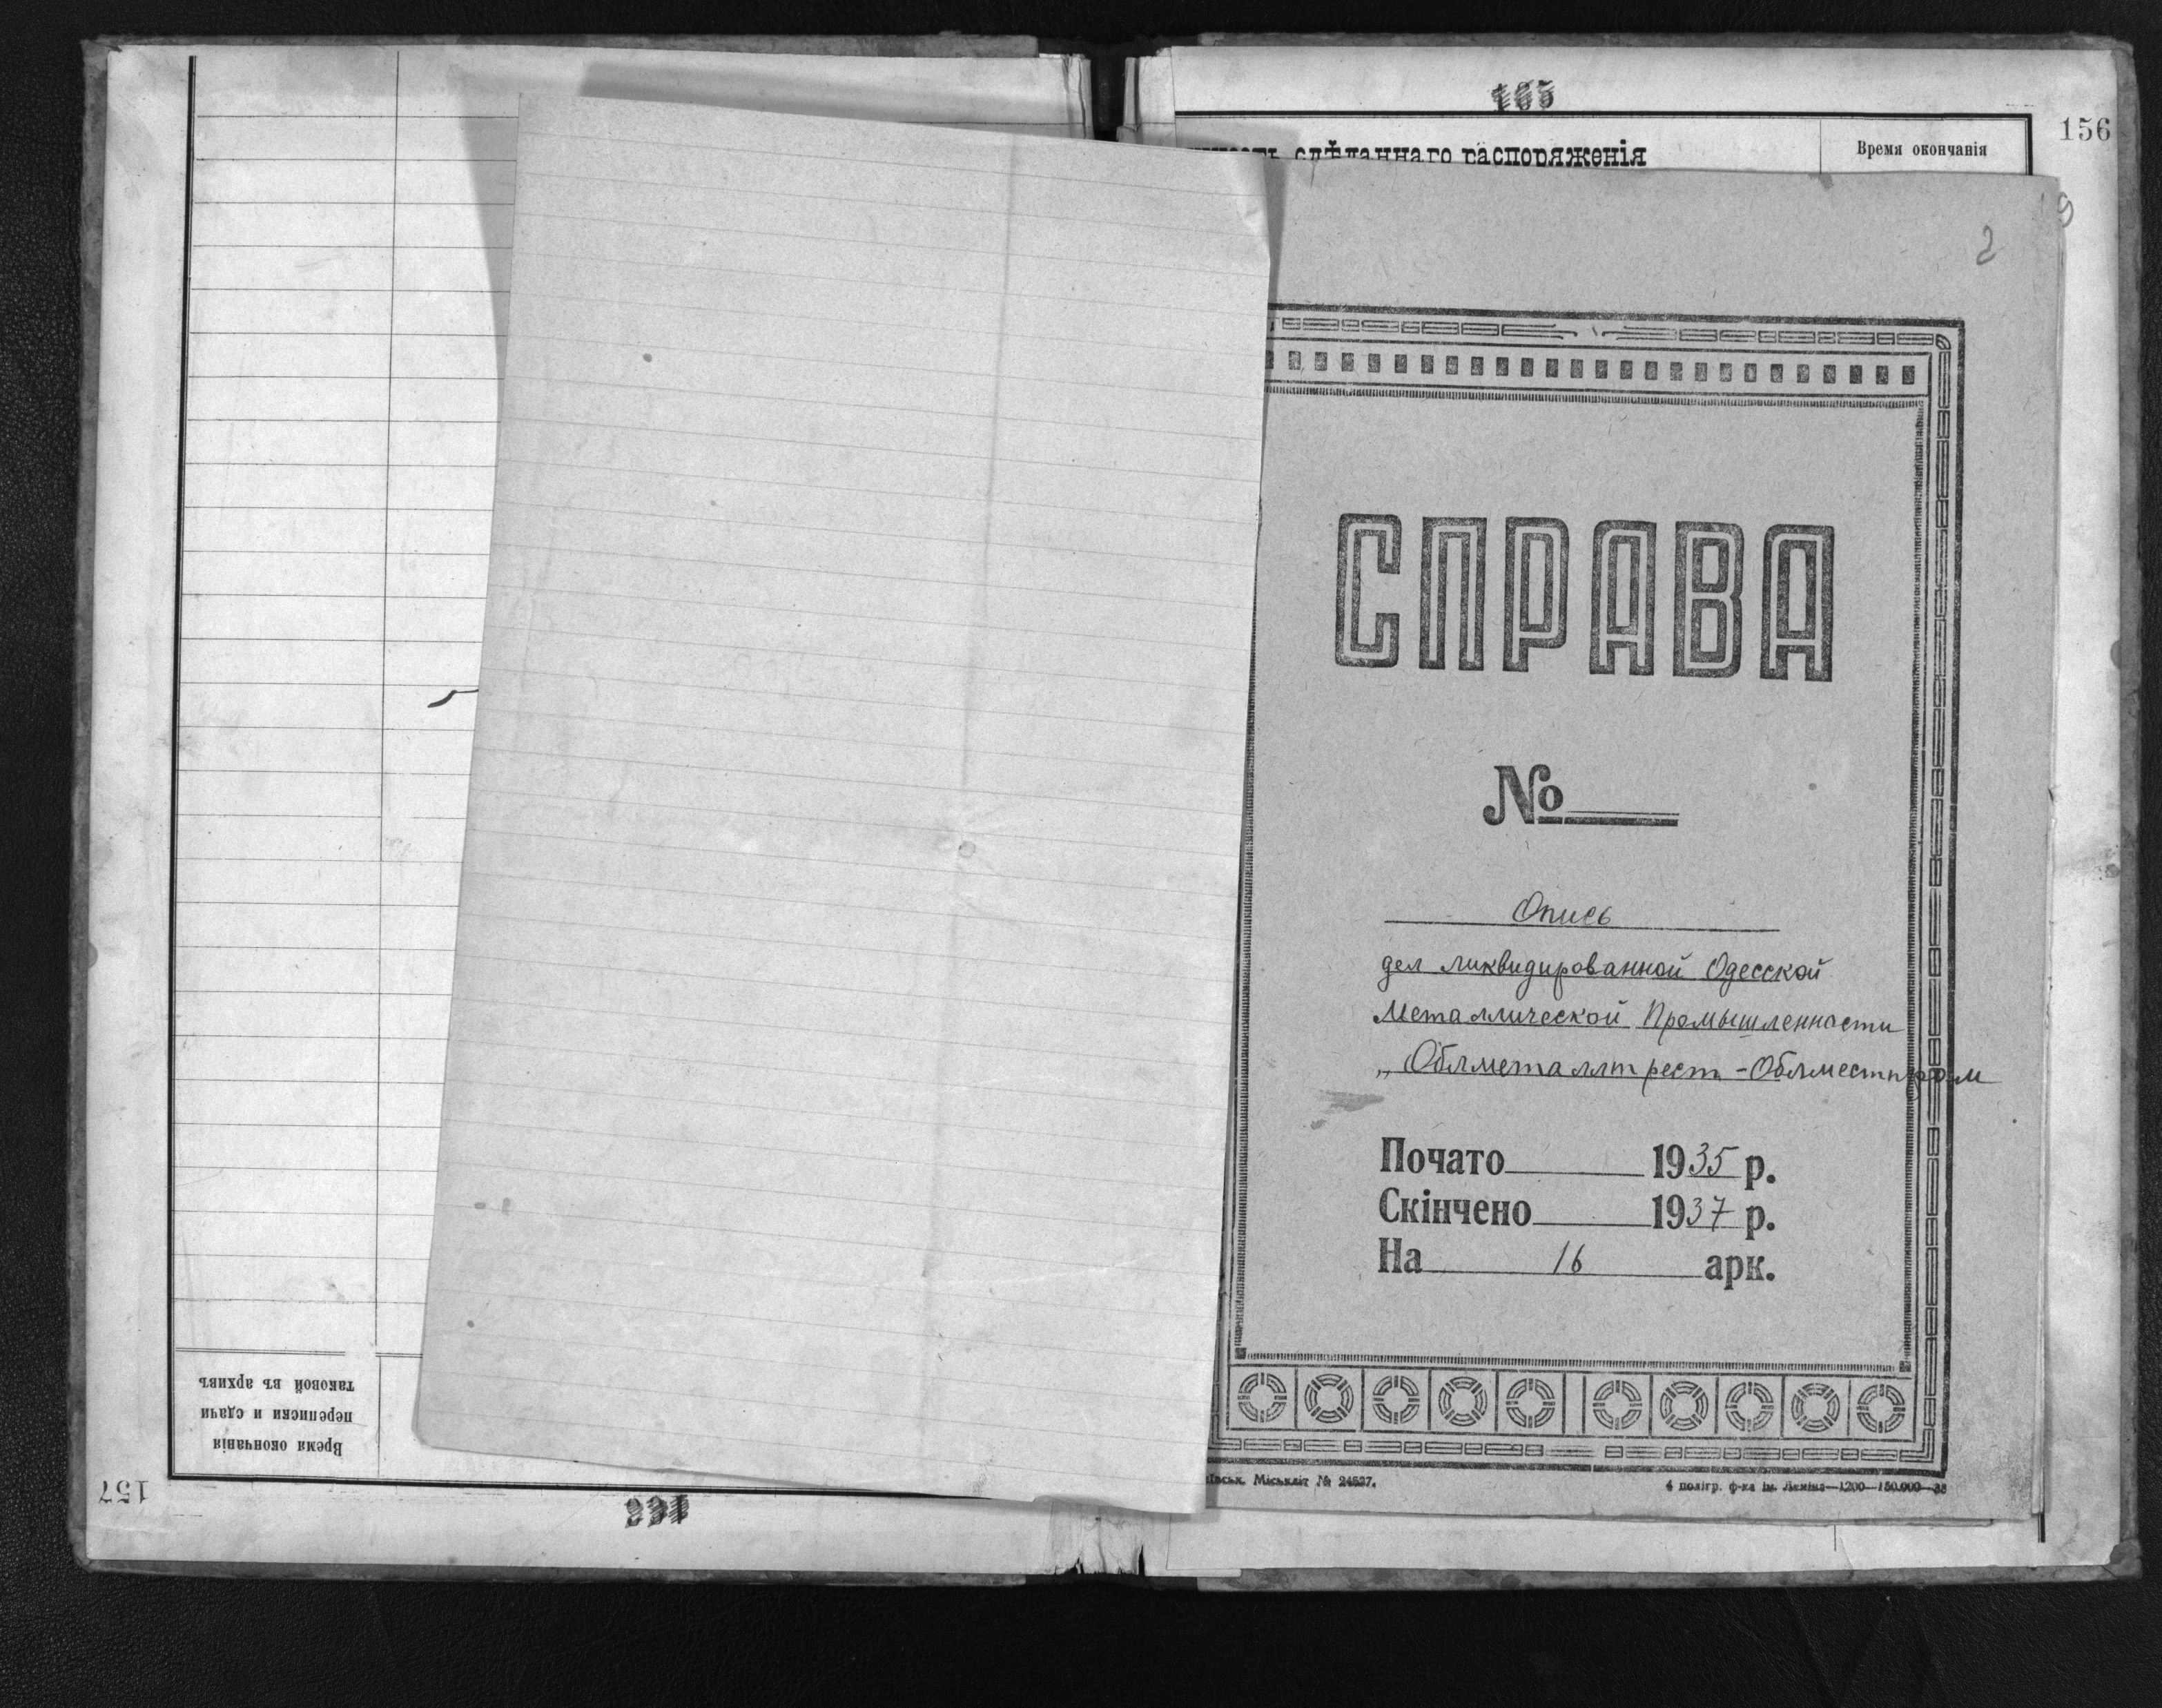 165
сдѣланнаго распоряженія
Время окончанія
156
9
2
СПРАВА
№
Опись
дел ликвидированной Одесской
Металлической Промышленности
„Облметаллтрест-Облместпром
Почато 1935 р.
Скінчено 1937 р.
На 16 арк.
Міськліт № 24527.
4 полігр. ф-ка ім. Леніна—1200—150.000—35
Время окончанія
переписки и сдачи
таковой въ архивъ
157